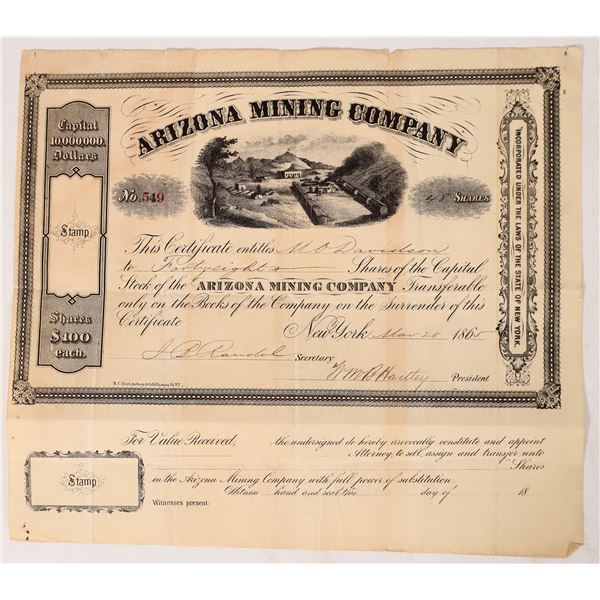 ARIZONA MINING COMPANY
Capital
10,000,000.
Dollars
Stamp
Shares
$100
each.
No. 549
48 SHARES
INCORPORATED UNDER THE LAWS OF THE STATE OF NEW YORK.
This Certificate entitles M O Davidson
to Forty eight Shares of the Capital
Stock of the ARIZONA MINING COMPANY Transferable
only on the Books of the Company on the Surrender of this
Certificate
New York Mar 28 1865
Secretary
Wm B Hartley President
For Value Received, the undersigned do hereby irrevocably constitute and appoint
Attorney, to sell, assign and transfer unto
Shares
Stamp
in the Arizona Mining Company with full power of substitution
Witness hand and seal this day of 18
Witnesses present: